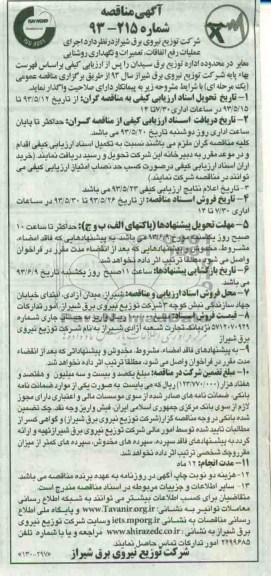 آگهی مناقصه
شماره ۲۱۵-۹۳
شرکت توزیع نیروی برق شیراز در نظر دارد اجرای
عملیات رفع اتفاقات، تعمیرات و نگهداری روشنایی
معابر در محدوده اداره توزیع برق سیدان را پس از ارزیابی کیفی براساس فهرست
بهاء پایه شرکت توزیع نیروی برق شیراز سال ۹۳ از طریق برگزاری مناقصه عمومی
(یک مرحله ای) با شرایط مشروحه زیر به پیمانکار دارای صلاحیت واگذار نماید.
۱- تاریخ تحویل اسناد ارزیابی کیفی به مناقصه گران: از تاریخ ۹۳/۵/۱۲ تا
۹۳/۵/۱۵ در ساعات اداری ۷/۳۰ تا ۱۴
۲- تاریخ دریافت اسناد ارزیابی کیفی از مناقصه گران: حداکثر تا پایان
ساعت اداری روز دوشنبه تاریخ ۹۳/۵/۲۰ می باشد.
کلیه مناقصه گران ملزم می باشند نسبت به تکمیل اسناد ارزیابی کیفی اقدام
و در موعد مقرر به دبیرخانه این شرکت تحویل و رسید دریافت نمایند. (خرید
اران اسناد ارزیابی کیفی در صورت کسب حد نصاب امتیاز ارزیابی کیفی می
توانند در مناقصه شرکت نمایند)
۳- تاریخ اعلام نتایج ارزیابی کیفی ۹۳/۵/۲۳ می باشد.
۴- تاریخ فروش اسناد مناقصه: از تاریخ ۹۳/۵/۲۶ تا ۹۳/۵/۳۰ در ساعات
اداری ۷/۳۰ تا ۱۴
۵- مهلت تحویل پیشنهادها (پاکتهای الف، ب و ج): حداکثر تا ساعت ۱۰
صبح روز یکشنبه مورخ ۹۳/۶/۹ می باشد به پیشنهادهایی که فاقد امضاء،
مشروط، مخدوش و پیشنهادهایی که بعد از انقضاء مدت مقرر در فراخوان
واصل می شود، مطلقا ترتیب اثر داده نخواهد شد.
۶- تاریخ بازگشایی پیشنهادها: ساعت ۱۱ صبح روز یکشنبه تاریخ ۹۳/۶/۹
می باشد
۷- محل فروش اسناد ارزیابی و مناقصه: شیراز، میدان آزادی، ابتدای خیابان
جهاد سازندگی نبش کوچه ۳ شرکت توزیع نیروی برق شیراز، امور تدارکات
۸- قیمت فروش اسناد: ریال واریز به حساب جاری شماره
۵۷۱۰۷۰۹۲۹ نزد بانک تجارت شعبه آزادی شیراز به نام شرکت توزیع نیروی
برق شیراز
۹- به پیشنهادهای فاقد امضاء، مشروط، مخدوش و پیشنهاداتی که بعد از انقضاء
مدت مقرر در فراخوان واصل می شود، مطلقا ترتیب اثر داده نخواهد شد.
۱۰- مبلغ تضمین شرکت در مناقصه: مبلغ یکصد و بیست و سه میلیون و هفتصد و
هفتاد هزار (۱۲۳/۷۷۰/۰۰۰) ریال که می بایست به صورت یکی از موارد ضمانت نامه
بانکی، ضمانت نامه های صادر شده از سوی موسسات مالی و اعتباری دارای مجوز
لازم از سوی بانک مرکزی جمهوری اسلامی ایران، فیش واریز وجه نقد، چک تضمین
شده بانکی در وجه مناقصه گزار (شرکت توزیع نیروی برق شیراز) و گواهی کسر از
مطالبات تایید شده توسط امور مالی شرکت توزیع نیروی برق شیراز تهیه و ارائه
گردد. به پیشنهادهای فاقد سپرده، سپرده های مخدوش، سپرده های کمتر از میزان
مقرر و چک شخصی ترتیب اثر داده نخواهد شد.
۱۱- مدت انجام: ۱۲ ماه
۱۲- هزینه دو نوبت چاپ آگهی در روزنامه به عهده برنده مناقصه می باشد.
۱۳- سایر اطلاعات و جزییات مربوطه در اسناد مناقصه مندرج است.
متقاضیان برای کسب اطلاعات بیشتر می توانند به شبکه اطلاع رسانی
معاملات توانیر به نشانی: www.Tavanir.org.ir و پایگاه ملی اطلاع
رسانی مناقصات به نشانی iets.mporg.ir وسایت شرکت توزیع نیروی
برق شیراز به نشانی: www.shirazedc.co.ir مراجعه و یا با شماره تلفن
۲۲۹۹۶۸۵ امور تدارکات تماس حاصل نمایند.
شرکت توزیع نیروی برق شیراز
«۱۳۰۰۲۹۷»